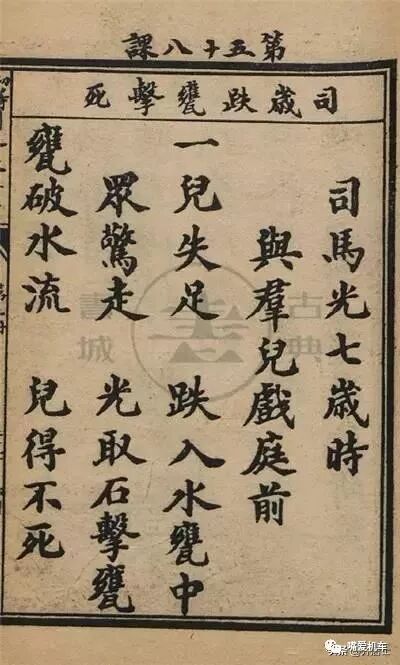 第五十八課
司歲跌甕擊死
司馬光七歲時
與羣兒戲庭前
一兒失足　跌入水甕中
眾驚走　光取石擊甕
甕破水流　兒得不死
古典
書城
嘴爱机车